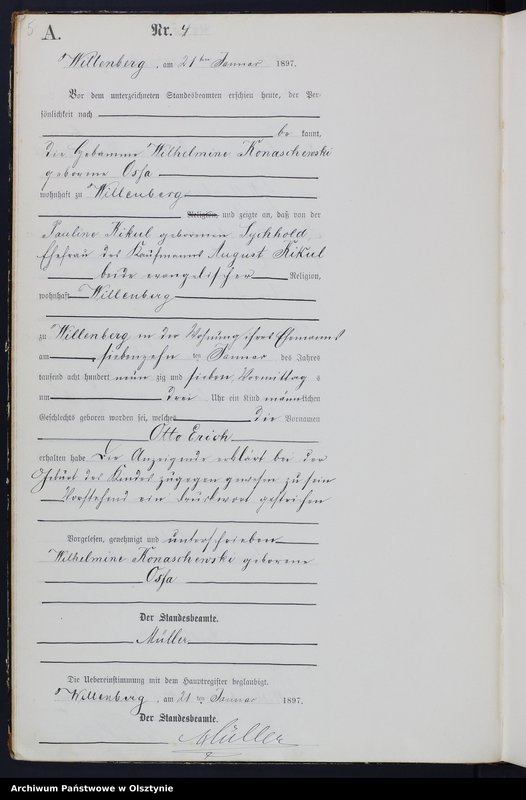 5
A.
Nr. 4
Willenberg, am 21ten Januar 1897.
Vor dem unterzeichneten Standesbeamten erschien heute, der Per-
sönlichkeit nach
be kannt,
die Hebamme Wilhelmine Konaschewski
geborene Ossa
wohnhaft zu Willenberg
Religion, und zeigte an, daß von der
Pauline Kikul geborenen
Ehefrau des Kaufmanns August Kikul
beide evangelischer Religion,
wohnhaft Willenberg
zu Willenberg in der Wohnung ihres Ehemannes
am siebenzehn ten Januar des Jahres
tausend acht hundert neun zig und sieben Vormittag s
um drei Uhr ein Kind männlichen
Geschlechts geboren worden sei, welches die Vornamen
Otto Erich
erhalten habe Die Anzeigende erklärt bei der
Geburt des Kindes zugegen gewesen zu sein
Vorstehend ein Druckwort gestrichen
Vorgelesen, genehmigt und unterschrieben
Wilhelmine Konaschewski geborene
Ossa
Der Standesbeamte.
Müller
Die Uebereinstimmung mit dem Hauptregister beglaubigt.
Willenberg, am 21 ten Januar 1897.
Der Standesbeamte.
Müller
Archiwum Państwowe w Olsztynie